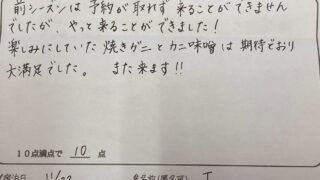 前シーズンは 予約が取れず 来ることができません
でしたが、やっと来ることができました!
楽しみにしていた 焼きガニとカニ味噌は 期待どおり
大満足でした。 また来ます!!
10点満点で 10 点
宿泊日 11/22
お名前(匿名可) T